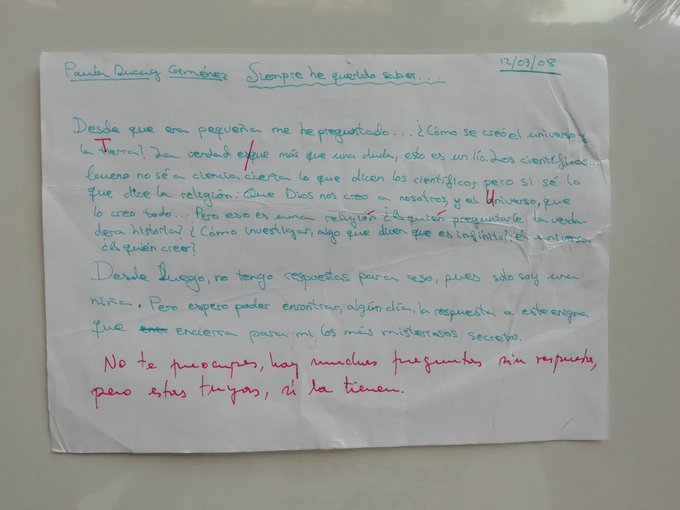 Paula Ducay Germénez Siempre he querido saber.... 12/03/08
Desde que era pequeña me he preguntado... ¿Cómo se creó el universo y
la Tierra? La verdad es que más que una duda, esto es un lío. Los científicos...
bueno no sé a ciencia cierta lo que dicen los científicos, pero si sé lo
que dice la religión: Que Dios nos creo a nosotros, y el Universo, que
lo creo todo... Pero eso es una religión ¿A quién preguntarle la verda-
dera historia? ¿Cómo investigar, algo que dicen que es infinito? el universo
¿A quién creer?
Desde luego, no tengo respuestas para eso, pues sólo soy una
niña. Pero espero poder encontrar, algún día, la respuesta a este enigma
que encierra para mi los más misteriosos secretos.
No te preocupes, hay muchas preguntas sin respuesta,
pero estas tuyas, sí la tienen.